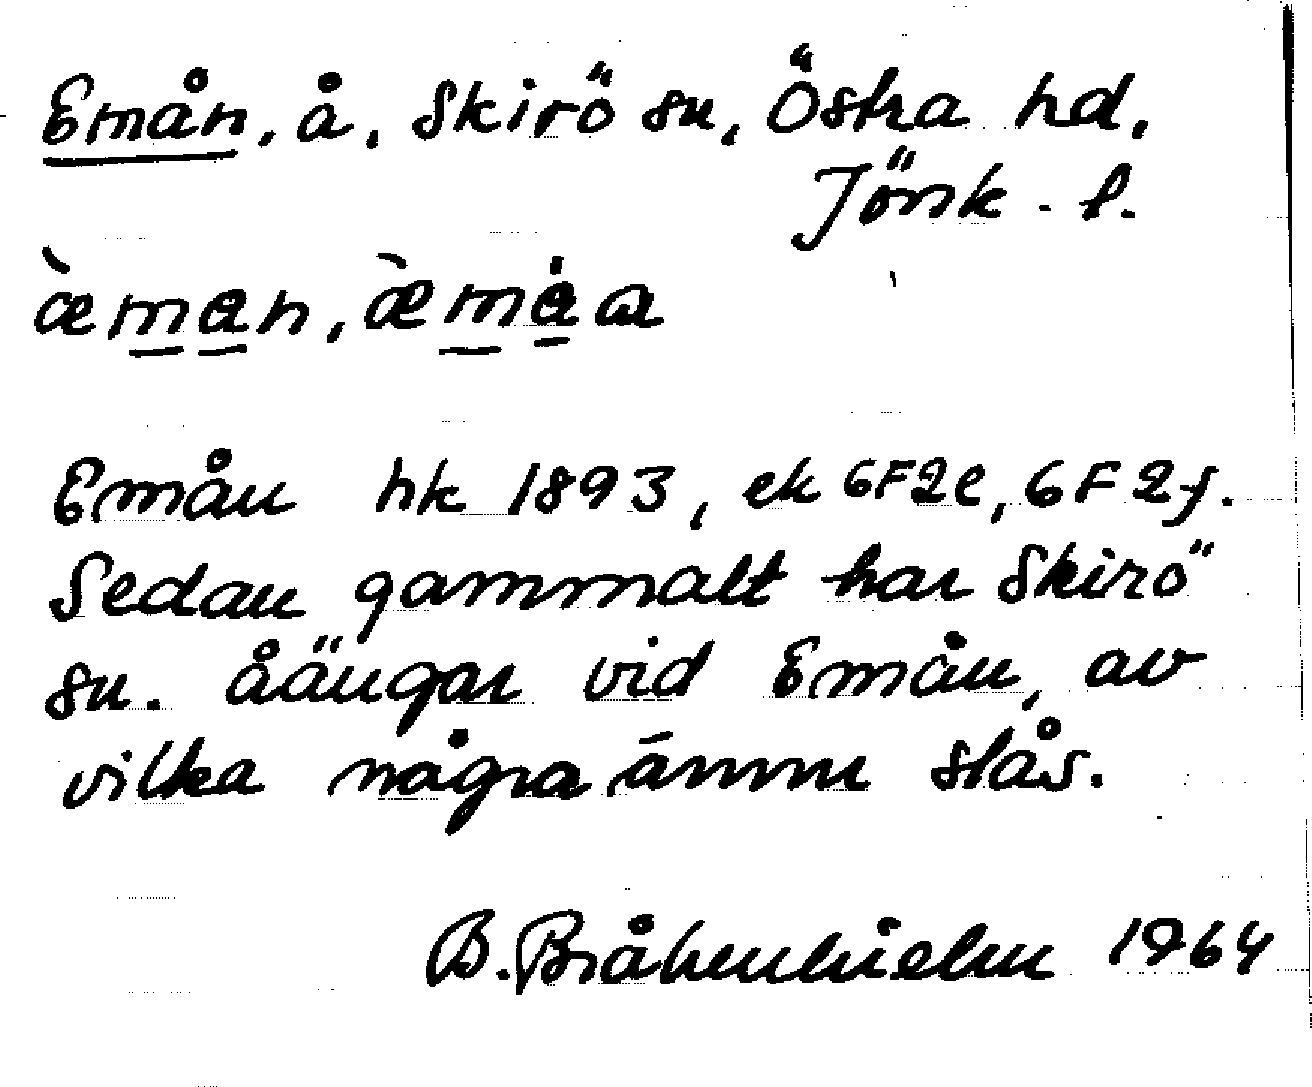 Emån, å, Skirö sn, Östra hd,
Jönk. l.
æ̀man, æ̀måa
Emån hk 1893, ek 6F2e, 6F2f.
Sedan gammalt har Skirö
sn. åängar vid Emån, av
vilka några ännu slås.
B. Bråkenhielm 1964